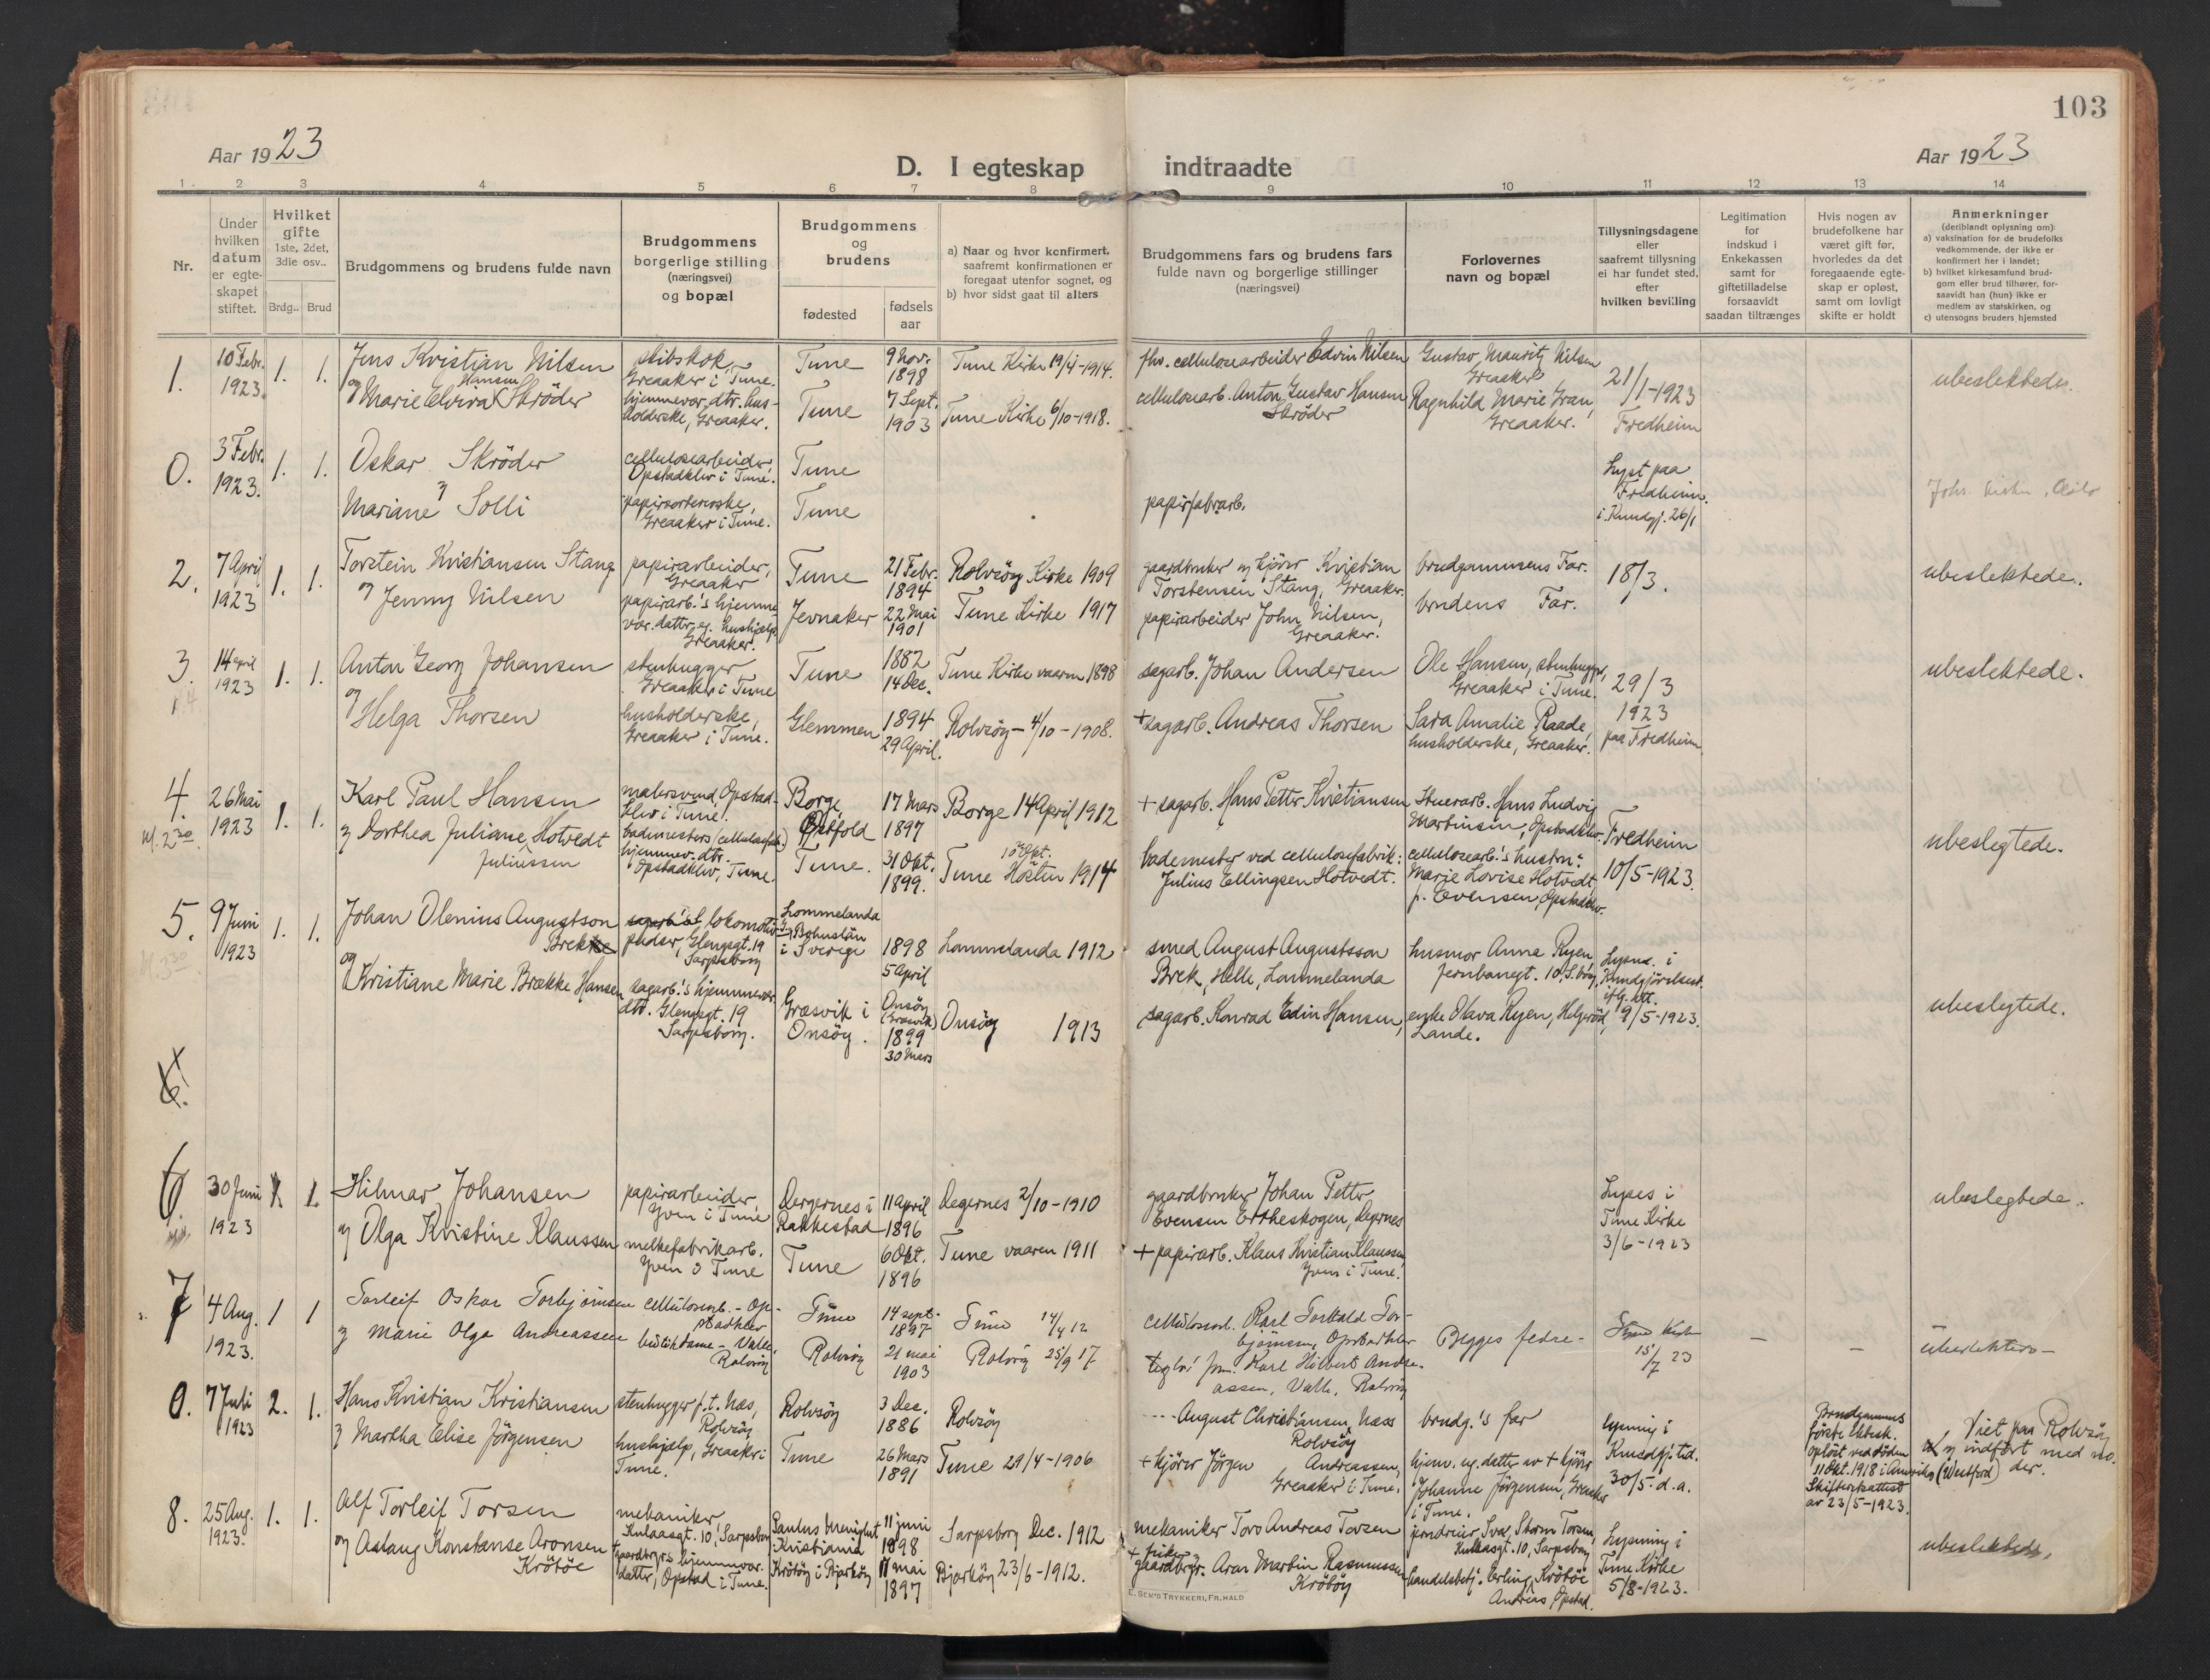 103
Aar 1923
D. I egteskap indtraadte
Aar 1923
1 2 3 4 5 6 7 8 9 10 11 12 13 14
Nr.
Under hvilken datum er egteskapet stiftet.
Hvilket gifte
1ste, 2det, 3die osv..
Brdg.. Brud
Brudgommens og brudens fulde navn
Brudgommens borgerlige stilling (næringsvei) og bopæl
Brudgommens og brudens
fødested
fødsels aar
a) Naar og hvor konfirmert, saafremt konfirmationen er foregaat utenfor sognet, og
b) hvor sidst gaat til alters
Brudgommens fars og brudens fars fulde navn og borgerlige stillinger (næringsvei)
Forlovernes navn og bopæl
Tillysningsdagene eller saafremt tillysning ei har fundet sted, efter hvilken bevilling
Legitimation for indskud i Enkekassen samt for giftetilladelse forsaavidt saadan tiltrænges
Hvis nogen av brudefolkene har været gift før, hvorledes da det foregaaende egteskap er opløst, samt om lovligt skifte er holdt
Anmerkninger
(deriblandt oplysning om):
a) vaksination for de brudefolks vedkommende, der ikke er konfirmert her i landet;
b) hvilket kirkesamfund brudgom eller brud tilhører, forsaavidt han (hun) ikke er medlem av statskirken, og
c) utensogns bruders hjemsted
1. 10 Febr. 1923. 1. 1.
Jens Kristian Nilsen
og Marie Elvira Hansen Skröder
skibskok, Greaaker i Tune.
hjemmevær. dtr. husholderske, Greaaker.
Tune 9 Nov. 1898 Tune Kirke 19/4-1914.
Tune 7 Sept. 1903 Tune Kirke 6/10-1918.
fhv. cellulosearbeider Edvin Nilsen
cellulosearb. Anton Gustav Hansen Skröder
Gustav Mauritz Nilsen Greaaker
Ragnhild Marie Gran, Greaaker.
21/1-1923 Fredheim
ubeslektede.
0. 3 Febr. 1923. 1. 1.
Oskar Skröder
og
Mariane Solli
cellulosearbeider Opstadklev i Tune.
papirsortererske, Greaaker i Tune.
Tune
Tune
papirfabrarb.
Lyst paa Fredheim. i. Kundgj. 26/1
2. 7 April 1923 1. 1.
Torstein Kristiansen Stang
og Jenny Nilsen
papirarbeider, Greaaker
papirarb.'s hjemmevær. dattr. eg. hushjælp Greaaker.
Tune 21 Febr. 1894 Rolvsöy Kirke 1909
Jevnaker 22 Mai 1901 Tune Kirke 1917
gaardbruker og kjörer Kristian Torstensen Stang, Greaaker.
papirarbeider John Nilsen, Greaaker.
brudgommens Far.
brudens Far.
18/3.
ubeslektede.
3. 14 April 1923 1. 1.
Anton Georg Johansen
og
Helga Thorsen
stenhugger Greaaker i Tune
husholderske, Greaaker i Tune.
Tune 1882 14 Dec. Tune Kirke vaaren 1898
Glemmen 1894 29 April. Rolvsöy - 4/10 - 1908.
sagarb. Johan Andersen
+ sagarb. Andreas Thorsen
Ole Hansen, stenhugger, Greaaker i Tune.
Sara Amalie Raade, husholderske, Greaaker.
29/3 1923 paa Fredheim
ubeslektede.
4. kl. 2 30. 26 Mai 1923 1. 1.
Karl Paul Hansen
og Dorthea Juliane Hotvedt
Juliussen
malersvend, Opstadklev i Tune.
bademesters (cellulosefab.) hjemmev. dtr. Opstadklev, Tune.
Borge Østfold 17 Mars 1897 Borge 14 April 1912
Tune. 31 Okt. 1899. Tune Hösten 1914
+ sagarb. Hans Petter Kristiansen
bademester ved cellulosefabrik: Julius Ellingsen Hotvedt.
Stuerarb. Hans Ludvig Martinsen, Opstadklev.
cellulosearb.'s hustru: Marie Lovise Hotvedt f. Evensen, Opstadklev.
Fredheim 10/5-1923.
ubeslegtede.
5. 9 Juni 1923 1. 1.
Johan Olenius Augustson Brekke
og
Kristiane Marie Brække Hansen
lokomotivpudser, Glengsgt. 19 Sarpsborg
sagarb.'s hjemmevær. dtr. Glengsgt. 19 Sarpsborg.
Lommelanda Bohuslän i Sverige 1898 5 April Lommelanda 1912
Græsvik i Onsöy. Onsöy (Græsvik) 1899 30 Mars Onsöy 1913
smed August Augustsson Brek, Helle, Lommelanda
sagarb. Konrad Edin Hansen,
husmor Anna Ryen, Jernbanegt. 10, S.borg
enke Olava Ryen, Helgeröd, Lande.
Lysn. i Kundgjörelsest. 9/5-1923.
ubeslegtede.
6.
6. 30 Juni 1923 1. 1.
Hilmar Johansen
og Olga Kristine Klaussen
papirarbeider Yven i Tune
melkefabrikarb. Yven i Tune
Degernes i Rakkestad 11 April 1896 Degernes 2/10-1910
Tune 6 Okt. 1896 Tune vaaren 1911
gaardbruker Johan Petter Evensen Ertheskogen, Degernes
+ papirarb. Klaus Kristian Klaussen, Yven i Tune.
Lyses i Tune Kirke 3/6-1923
ubeslegtede.
7 4 Aug. 1923. 1 1
Torleif Oskar Torbjörnsen
og Marie Olga Andreassen
cellulosearb. - Opstadklev
butikdame - Valle, Rolvsöy
Tune 14 sept. 1897 Tune 14/4 12
Rolvsöy 21 mai 1903 Rolvsöy 25/9 17
cellulosearb. Karl Torvald Torbjörnsen, Opstadklev
Karl Hilbert Andreassen, Valle, Rolvsöy
Begges fedre -
Tune Kirke 15/7 23
-
-
ubeslektede -
0. 7 Juli 1923 2. 1.
Hans Kristian Kristiansen
og Martha Elise Jörgensen
stenhugger p.t. Næs, Rolvsöy
hushjælp, Greaaker i Tune.
Rolvsöy 3 Dec. 1886 Rolvsöy
Tune 26 Mars 1891 Tune 29/4-1906
August Christiansen, Næss Rolvsöy
+ kjörer Jörgen Andreassen, Greaaker i Tune.
brudg.'s far
hjem. eg. datter av + kjörer Johanne Jörgensen, Greaaker i Tune.
lysning i Kundgj. tid. 30/5. d.a.
Brudgommens förste ektesk. oplöst ved döden 11 Okt. 1918 i Amerika (Westford) Skifteattest av 23/5-1923.
Viet paa Rolvsöy og indfört med no. der.
8. 25 Aug. 1923. 1. 1.
Alf Torleif Torsen
og Aslaug Konstanse Aronsen Kröböe
mekaniker, Kulaasgt. 10, Sarpsborg
gaardbrgr's hjemmevær. datter, Opstad i Tune.
Paulus menighet Kristiania 11 juni 1898 Sarpsborg Dec. 1912
Kröböy i Bjarköy 17 mai 1897 Bjarköy 23/6-1912.
mekaniker Tore Andreas Torsen
+ fisker gaardbrgr. Aron Martin Rasmussen Kröböy
jerndreier Sval Storm Torsen, Kulaasgt. 10, Sarpsborg
handelsbetj. Erling Kröböe Andreas Opstad.
Lysning i Tune Kirke 5/8-1923.
ubeslektede.
E. SEM'S TRYKKERI, FR.HALD